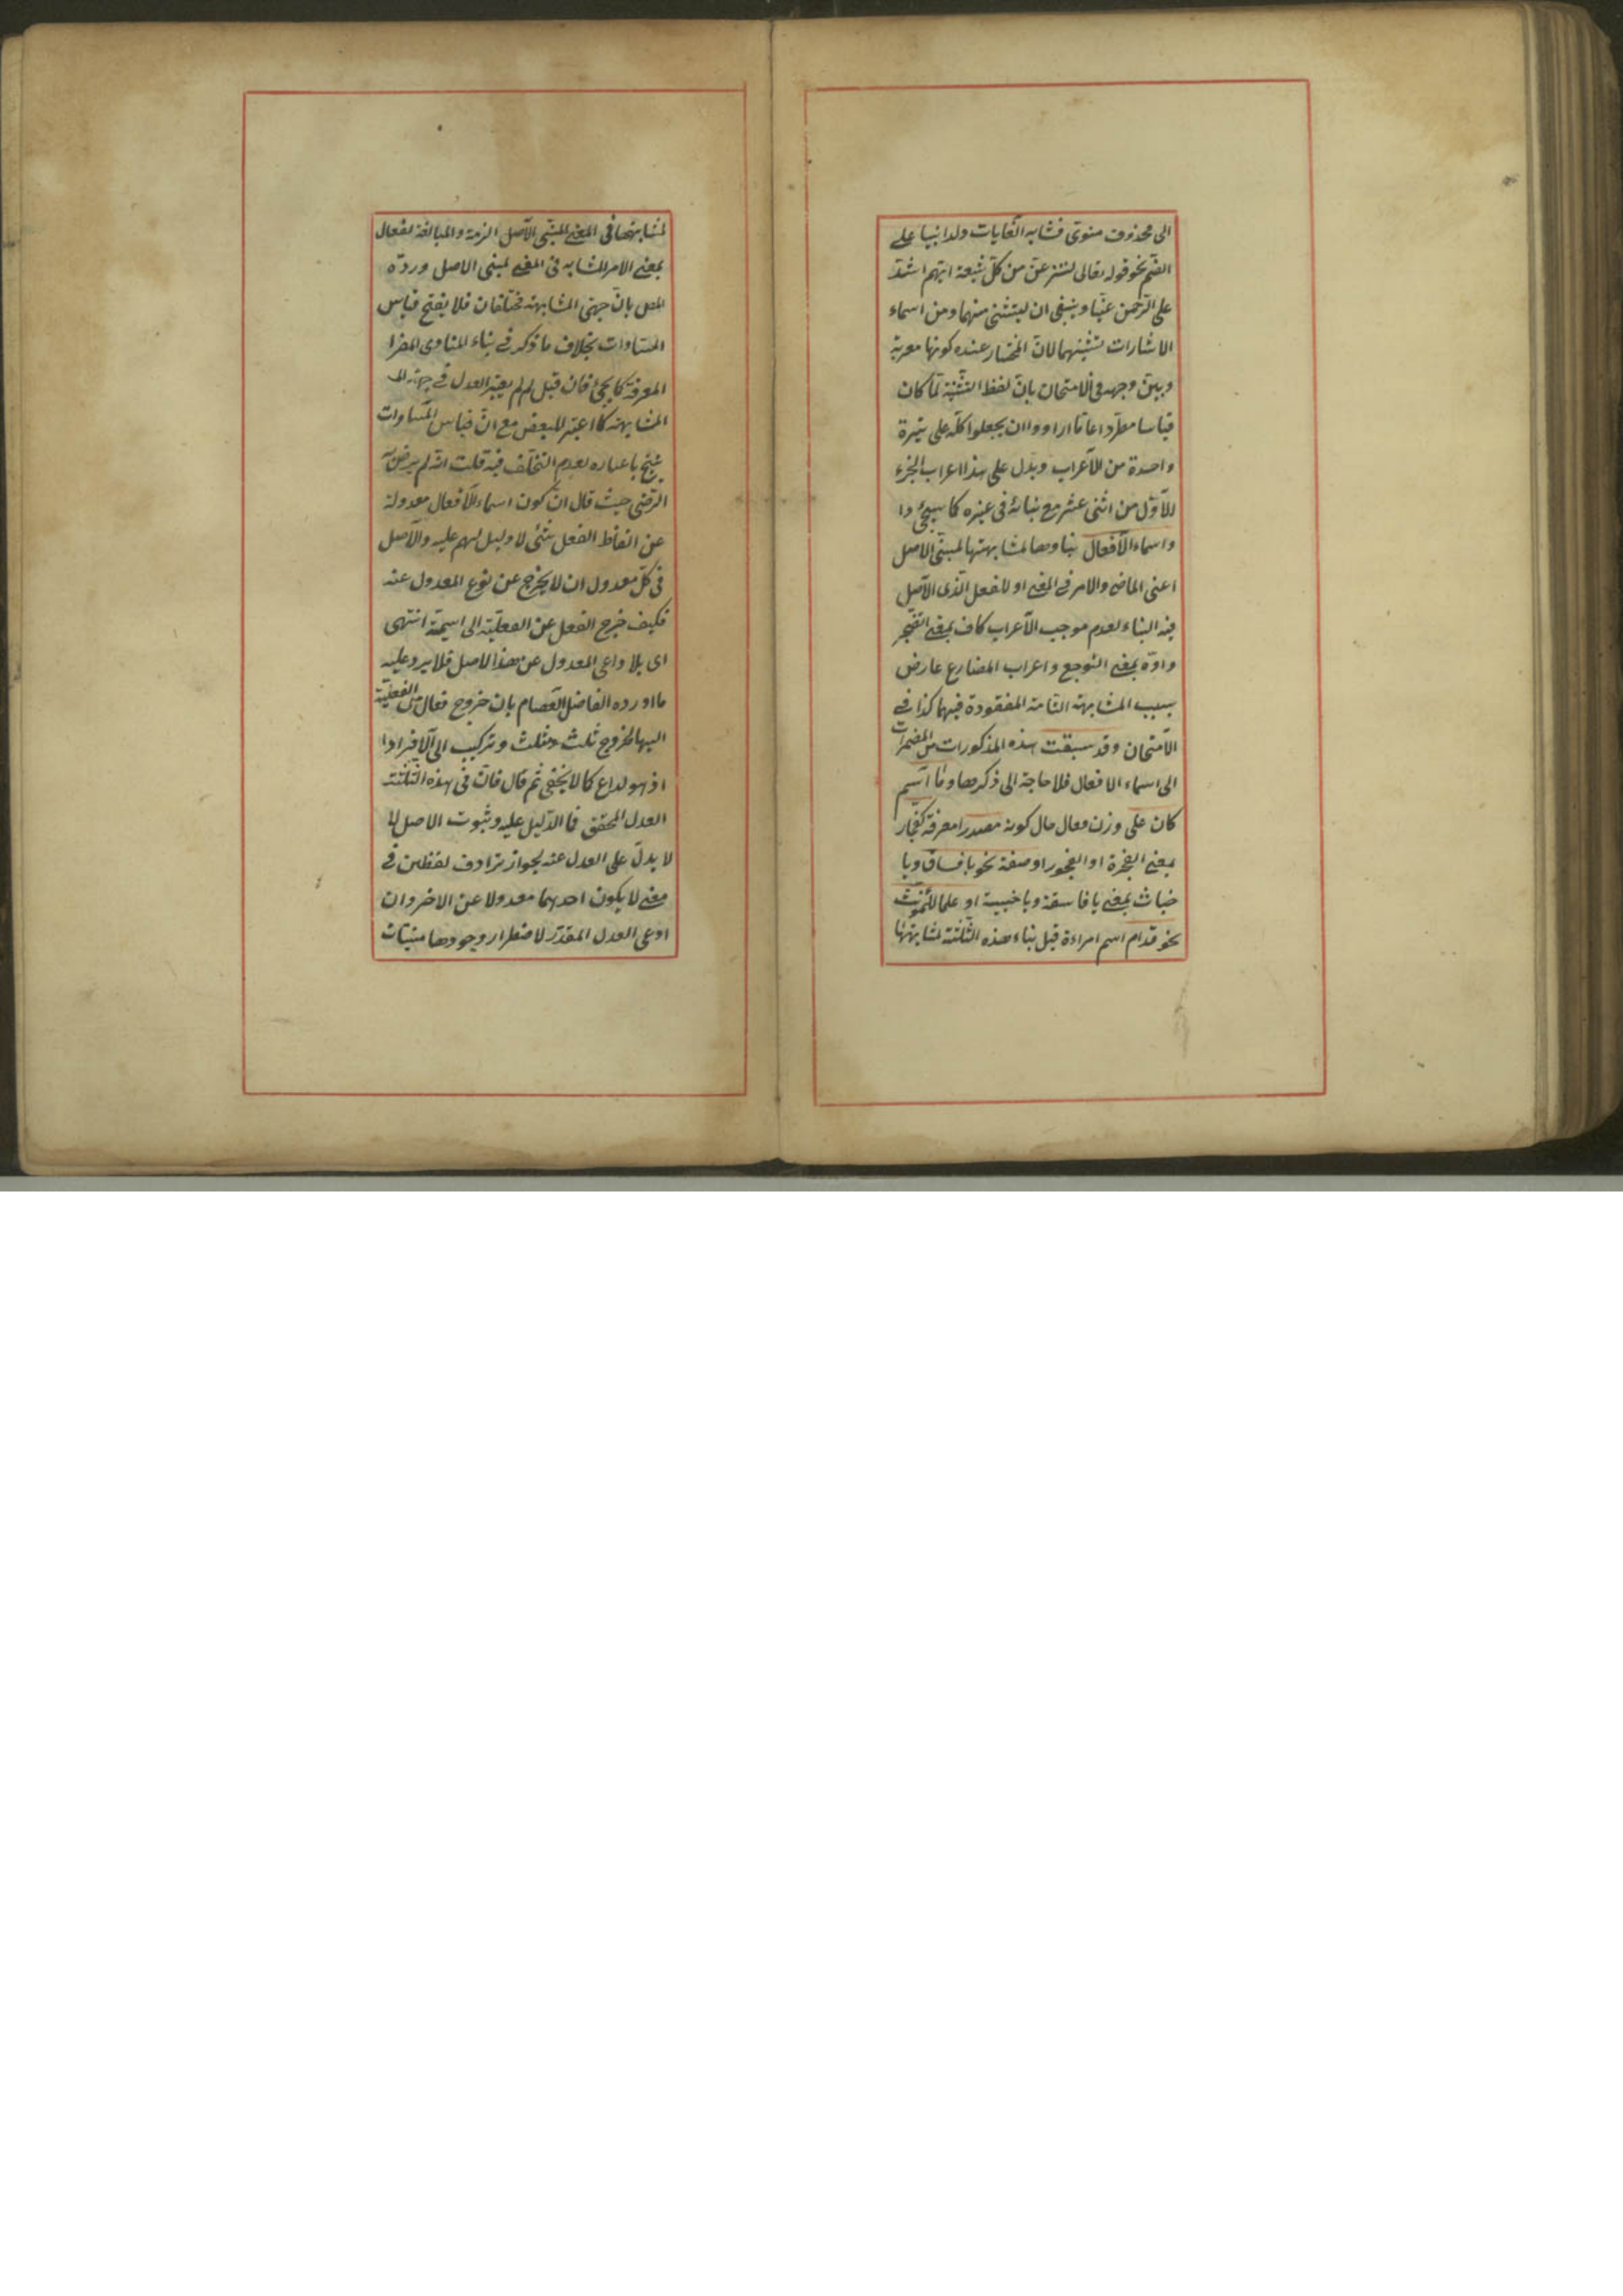 الى محذوف منوى فشابه الغايات ولذا بنيا على
الضم نحو قوله تعالى لننزعن من كل شيعة ايهم اشد
على الرحمن عتيا وينبغى ان يستثنى منهما ومن اسماء
الاشارات تثنيتهما لان المختار عنده كونها معربة
وبين وجهه فى الامتحان بان لفظ التثنية لما كان
قياسا مطردا عاما ارادوا ان يجعلوا كله على وتيرة
واحدة من الاعراب ويدل على هذا اعراب الجزء
الاول من اثنى عشر مع بنائه فى غيره كما سيجئ
واسماء الافعال بناوها لمشابهتها لمبنى الاصل
اعنى الماضى والامر فى المعنى او للفعل الذى الاصل
فيه البناء لعدم موجب الاعراب كاف بمعنى اتضجر
واوه بمعنى اتوجع واعراب المضارع عارض
بسبب المشابهة التامة المفقودة فيهما كذا فى
الامتحان وقد سبقت هذه المذكورات من المضمرات
الى اسماء الافعال فلا حاجة الى ذكرها وما اسم
كان على وزن فعال حال كونه مصدرا معرفة كفجار
بمعنى الفجرة او الفجور او صفة نحو يا فساق ويا
خباث بمعنى يا فاسقة ويا خبيثة او علما للمؤنث
نحو قدام اسم امراءة قيل بناء هذه الثلثة لمشابهتها
لمشابهتها فى المعنى المبنى الاصل الزمة والمبالغة لفعال
بمعنى الامر المشابه فى المعنى لمبنى الاصل ورده
المص بان جهتى المشابهة مختلفان فلا يفتح قياس
المساوات بخلاف ما ذكر فى بناء المنادى المفرد
المعرفة كما يجئ فان قيل لم لم يعتبر العدل فى جهة
المشابهة كما اعتبر البعض مع ان قياس المساوات
ينتج باعتباره لعدم التخلف فيه قلت انه لم يرض به
الرضى حيث قال ان كون اسماء الافعال معدولة
عن الفاظ الفعل شئ لا دليل لهم عليه والاصل
فى كل معدول ان لا يخرج عن نوع المعدول عنه
فكيف خرج الفعل عن الفعلية الى اسمية انتهى
اى بلا داعى المعدول عن هذا الاصل فلا يرد عليه
ما اورده الفاضل العصام بان خروج فعال من الفعلية
اليها كخروج ثلث ومثلث وتركيب الى الافراد
اذ هو لداع كما لا يخفى ثم قال فان فى هذه الثلثة
العدل المحقق فما الدليل عليه وثبوت الاصل لها
لا يدل على العدل عنه لجواز ترادف لفظين فى
معنى لا يكون احدهما معدولا عن الاخر وان
ادعى العدل المقدر لاضطرار وجودها مبنيات